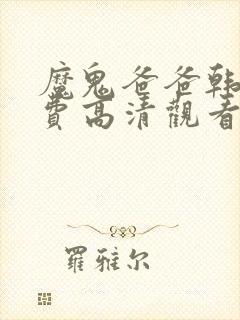 魔鬼爸爸韩
費高清觀看
羅雅尔